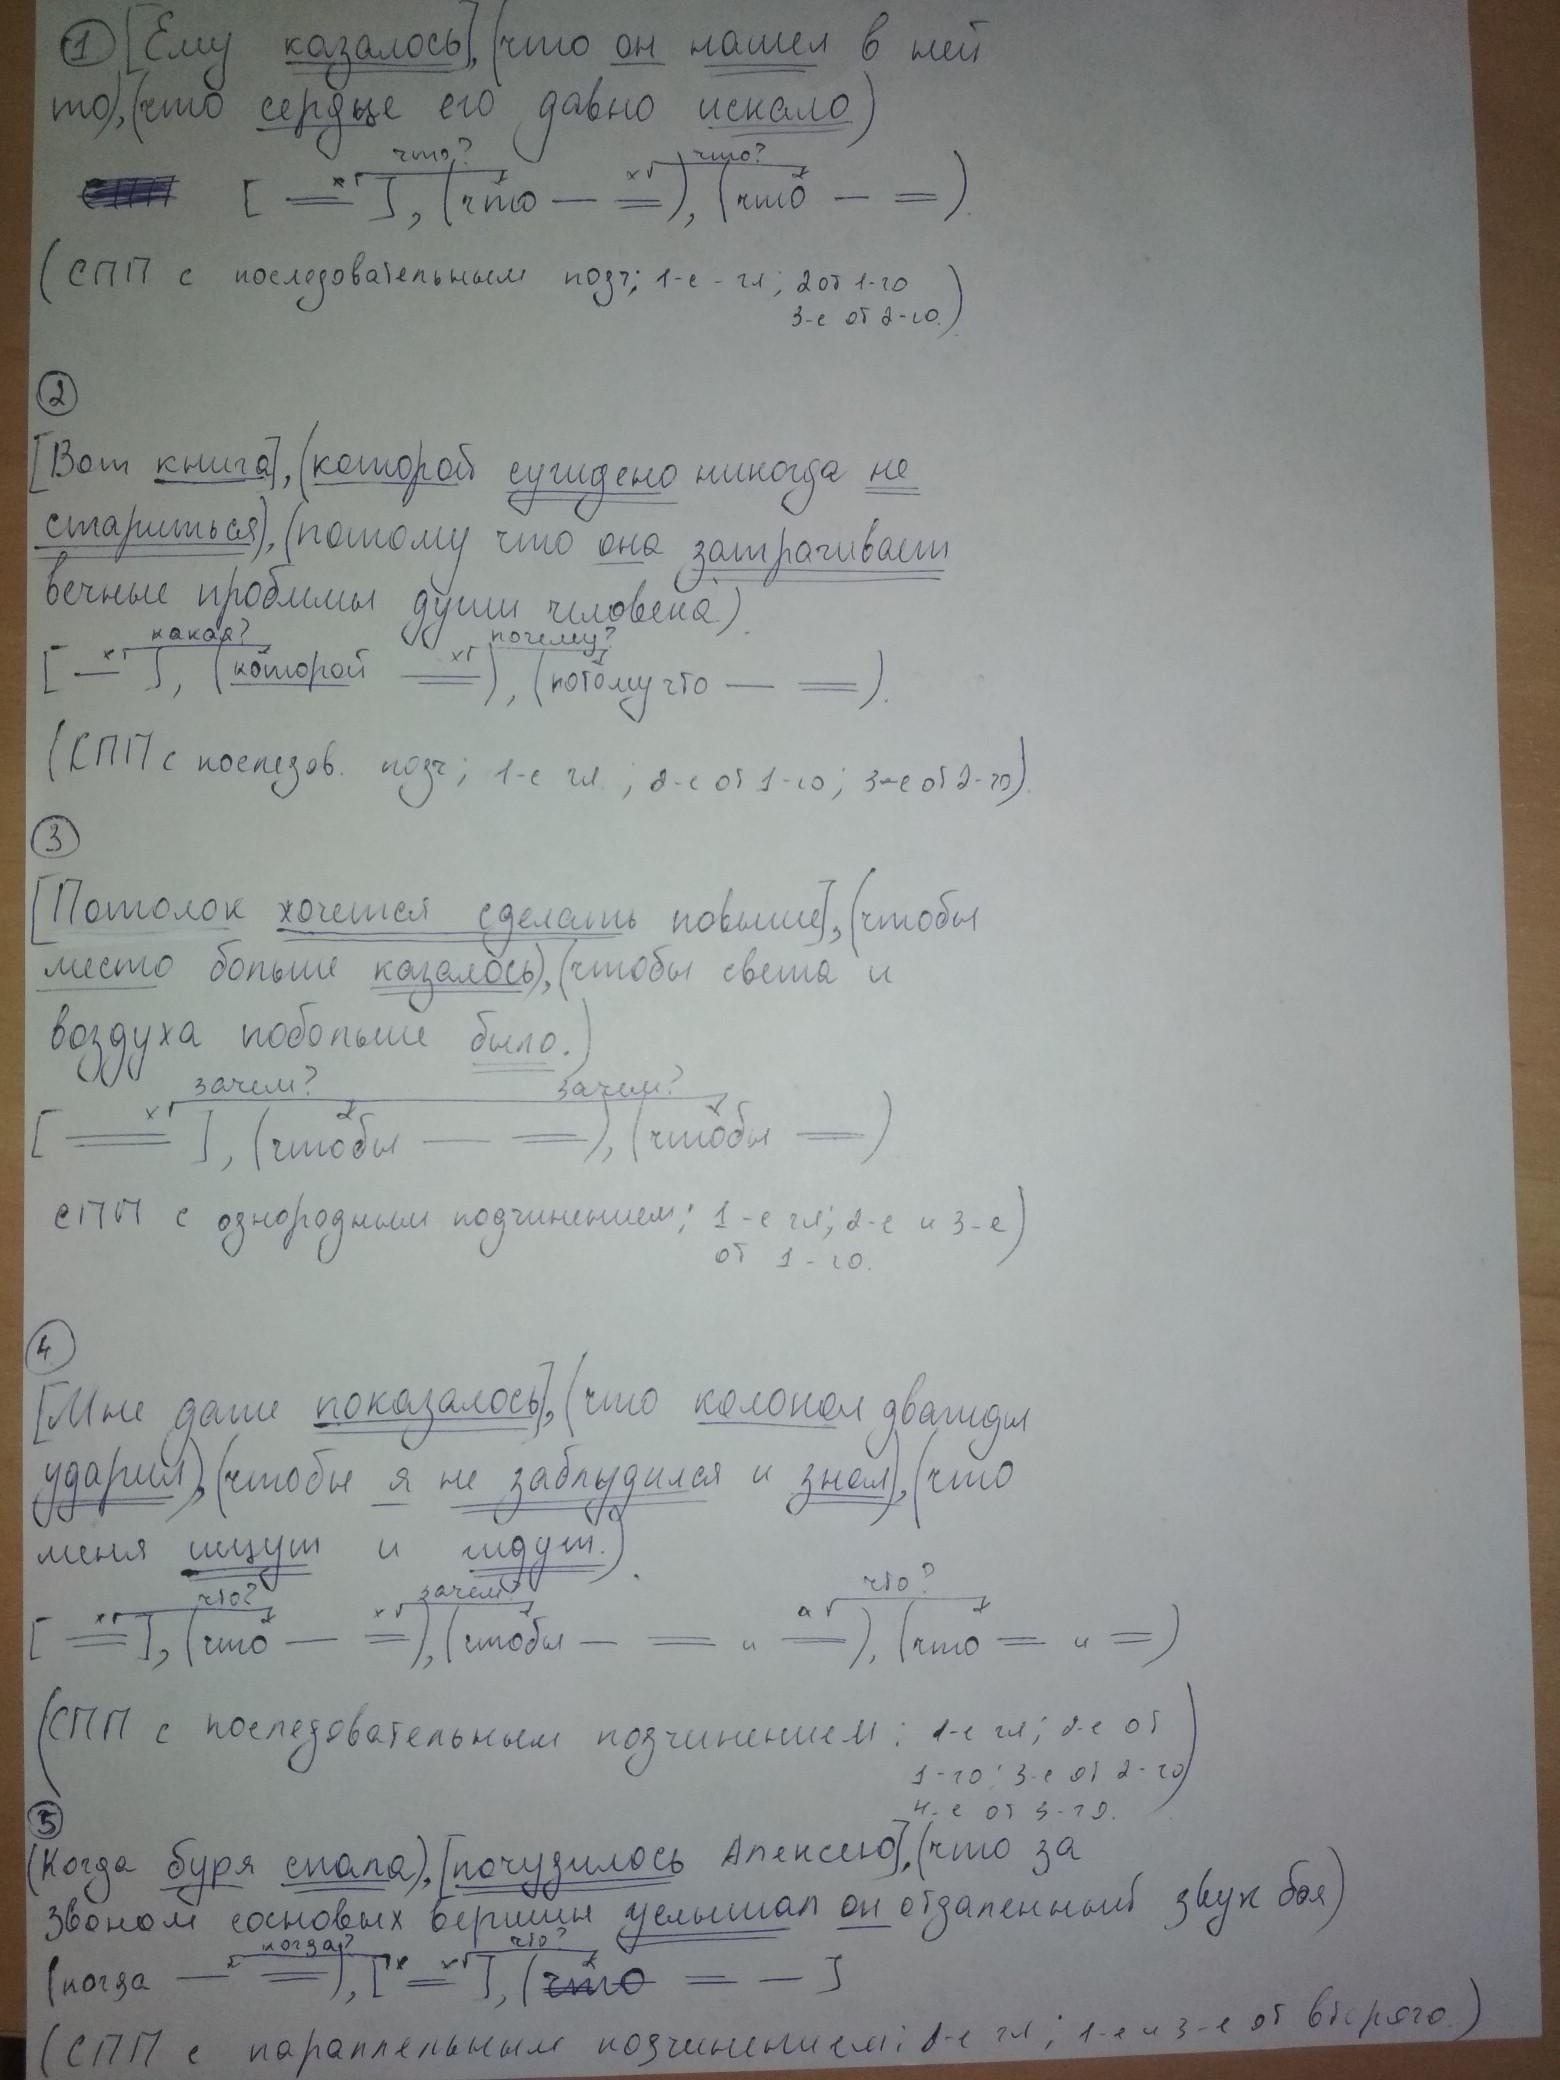 ① [Ему казалось], (что он нашел в ней
то), (что сердце его давно искало)
что? что?
[ ═ ], (что — ═), (что — ═).
(СПП с последовательным подч; 1-е - гл; 2 от 1-го
3-е от 2-го.)
②
[Вот книга], (которой суждено никогда не
стариться), (потому что она затрагивает
вечные проблемы души человека).
какая? почему?
[ — ], (которой ═), (потому что — ═).
(СПП с последов. подч; 1-е гл.; 2-е от 1-го; 3-е от 2-го).
③
[Потолок хочется сделать повыше], (чтобы
место больше казалось), (чтобы света и
воздуха побольше было.)
зачем? зачем?
[ ═ ], (чтобы — ═), (чтобы ═)
СПП с однородным подчинением; 1-е гл; 2-е и 3-е)
от 1-го.
④
[Мне даже показалось], (что колокол дважды
ударил), (чтобы я не заблудился и знал), (что
меня ищут и ждут.).
что? зачем? что?
[ ═ ], (что — ═), (чтобы — ═ и ═), (что ═ и ═)
(СПП с последовательным подчинением: 1-е гл; 2-е от
1-го; 3-е от 2-го
4-е от 3-го.)
⑤
(Когда буря спала), [почудилось Алексею], (что за
звоном сосновых вершин услышал он отдаленный звук боя)
когда? что?
(когда — ═), [ ═ ], (что ═ — ]
(СПП с параллельным подчинением; 2-е гл; 1-е и 3-е от второго.)